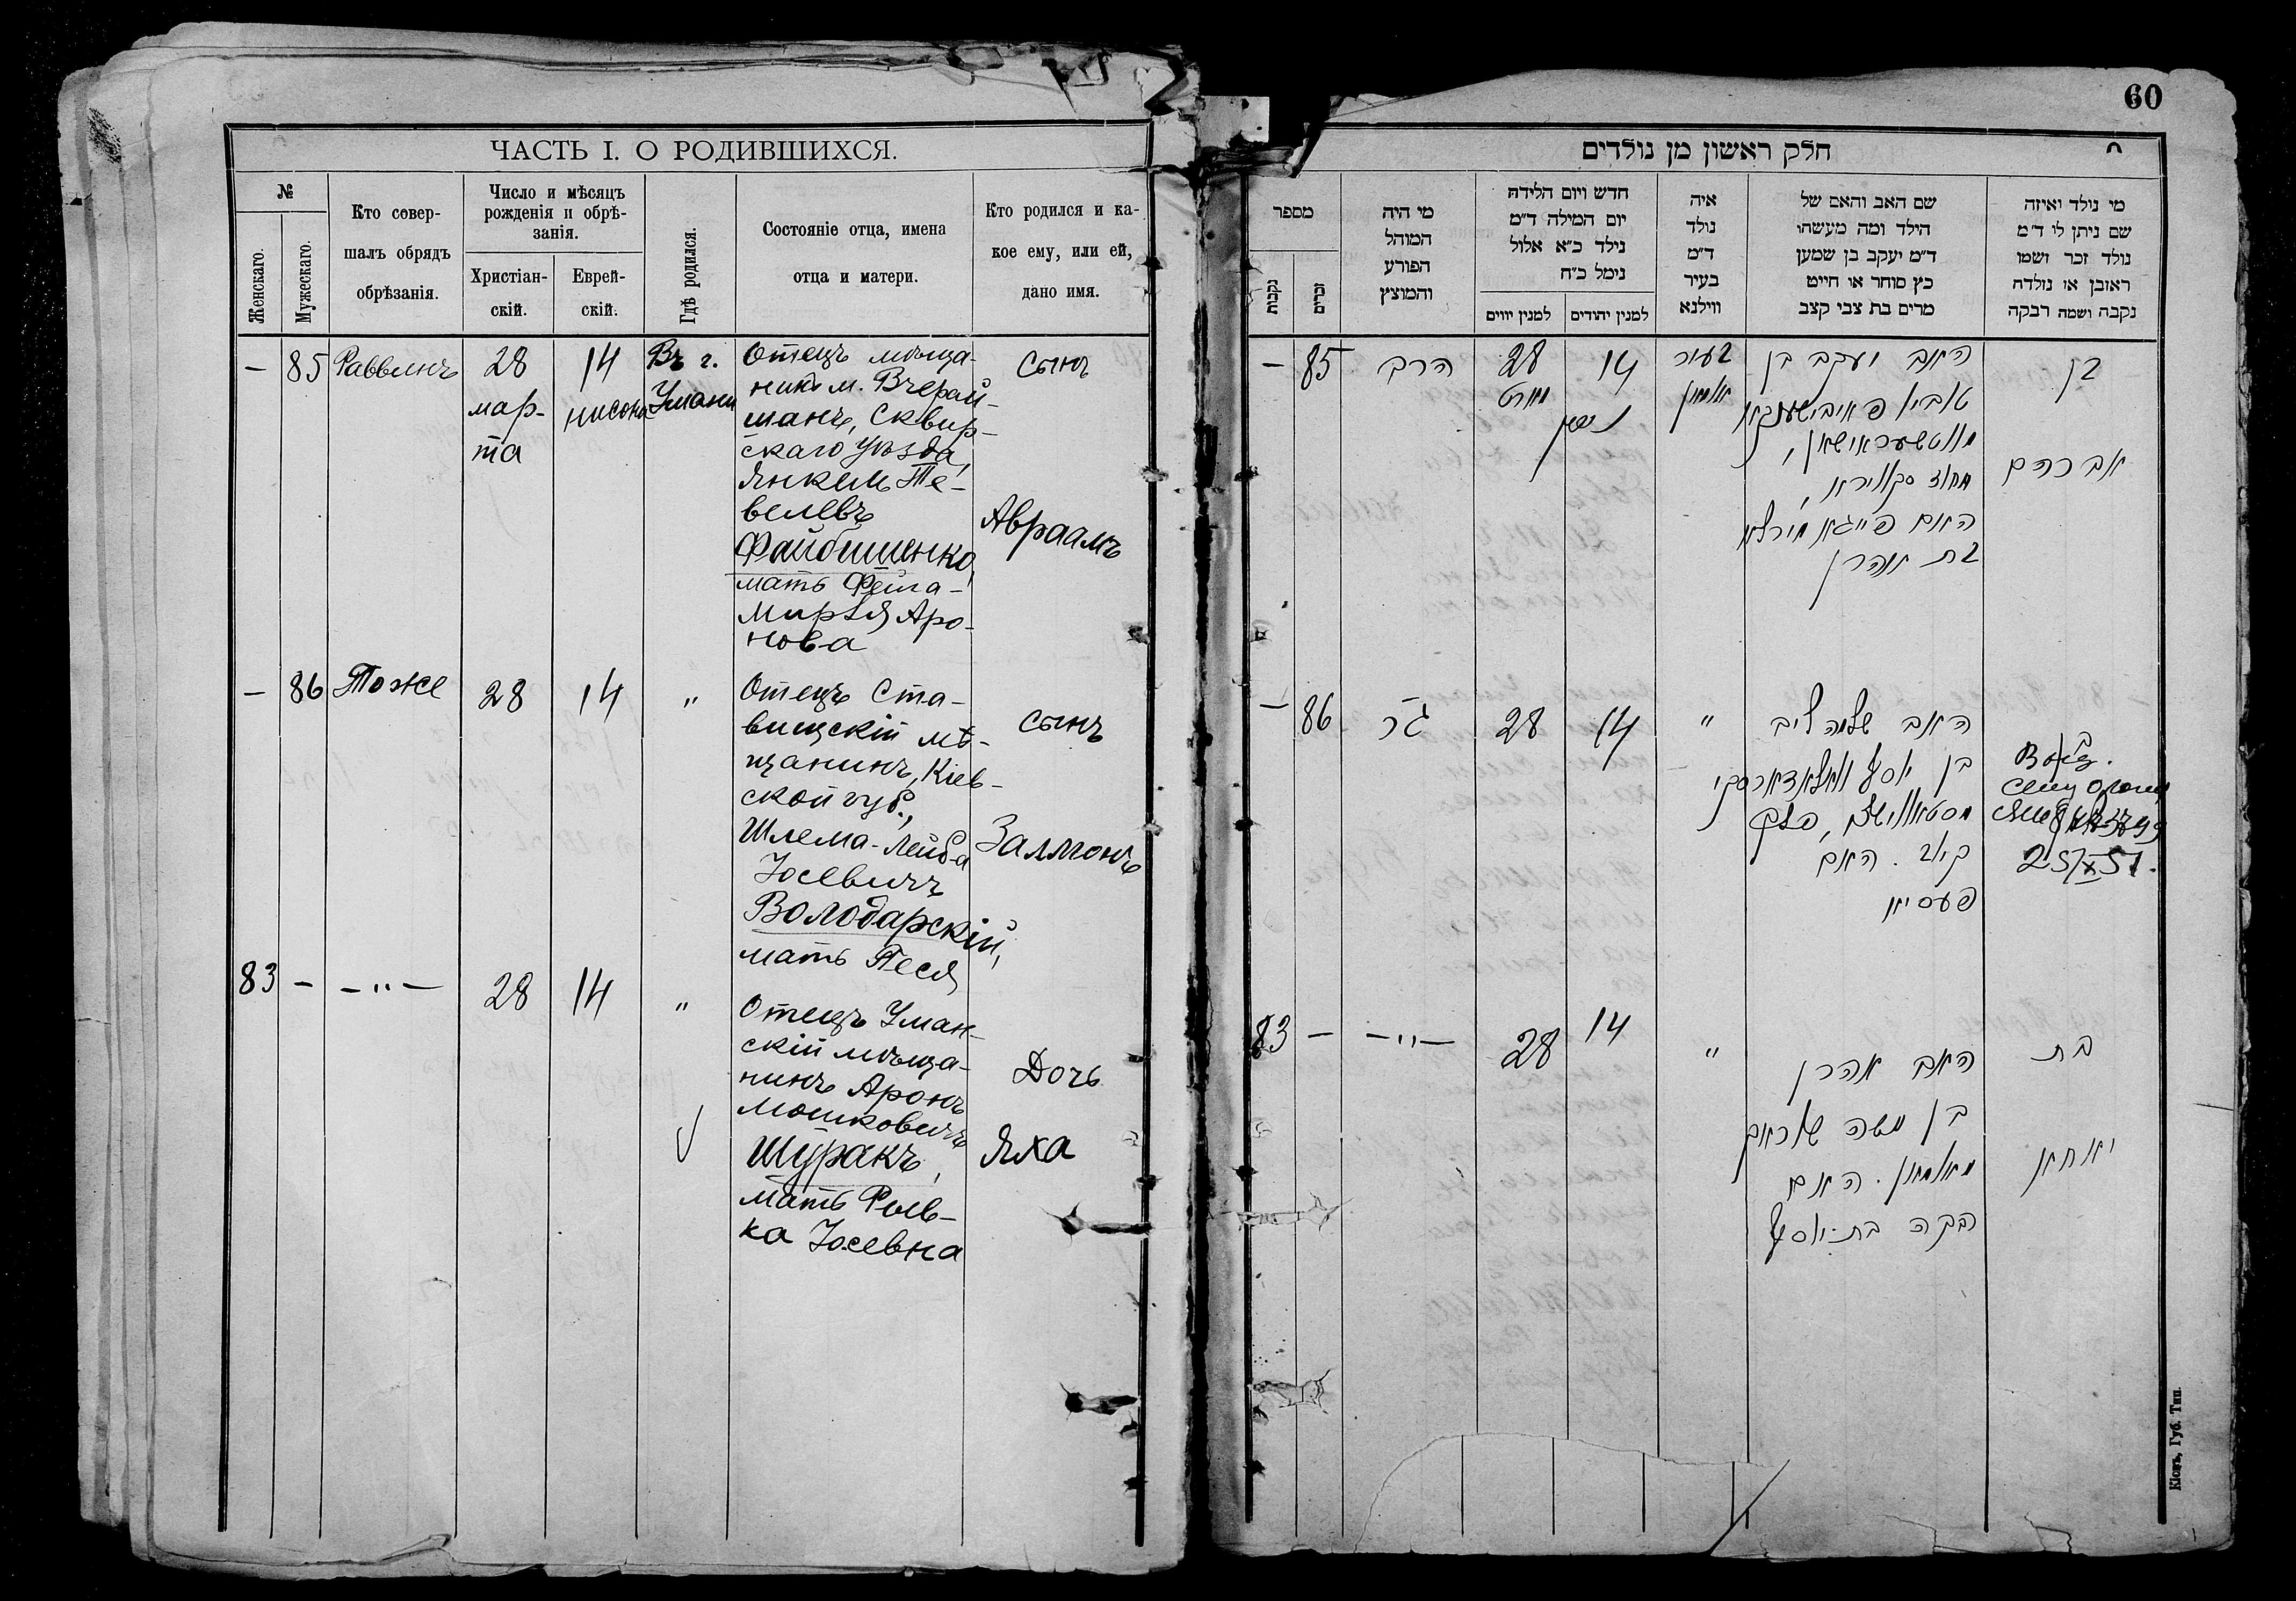 60
ЧАСТЬ I. О РОДИВШИХСЯ.
№
Женскаго.
Мужескаго.
Кто совер-
шалъ обрядъ
обрѣзанія.
Число и мѣсяцъ
рожденія и обрѣ-
занія.
Христіан-
скій.
Еврей-
скій.
Гдѣ родился.
Состояніе отца, имена
отца и матери.
Кто родился и ка-
кое ему, или ей,
дано имя.
— 85 Раввинъ
28
мар-
та
14
нисона
Въ г.
Умани
Отецъ мѣща-
нинъ м. Вчерай-
шанъ, Сквир-
скаго уѣзда,
Янкель Те-
велевъ
Файбишенко,
мать Фейга-
Мирля Аро-
нова
сынъ
Авраамъ
— 86 Тоже 28 14 "
Отецъ Ста-
вищскій мѣ-
щанинъ, Кіев-
ской губ.,
Шлема-Лейба
Іосевичъ
Володарскій,
мать Песя
сынъ
Залмонъ
83 — — " — 28 14 "
Отецъ Уман-
скій мѣща-
нинъ Аронъ
Мошковичъ
Шуракъ,
мать Рив-
ка Іосевна
Дочь
Яха
חלק ראשון מן נולדים
מספר
נקבות
זכרים
מי היה
המוהל
הפורע
והמוצץ
חדש ויום הלידה
יום המילה ד״מ
נילד כ״א אלול
נימל כ״ח
למנין יווים
למנין יהודים
איה
נולד
ד״מ
בעיר
ווילנא
שם האב והאם של
הילד ומה מעשהו
ד״מ יעקב בן שמען
כץ סוחר או חייט
מרים בת צבי קצב
מי נולד ואיזה
שם ניתן לו ד״מ
נולד זכר ושמו
ראובן או נולדה
נקבה ושמה רבקה
— 85 הרב
28
מארט
14
ניסן
בעיר
אומאן
האב יעקב בן
טביא פאיבישענקא
האם פייגא מירלא
בת אהרן
בן
אברהם
— 86 28 14 "
האב שלמה ליב
בן יוסף וואלאדארסקי
קיוב. האם
פעסיא
83 — — " — 28 14 "
האב אהרן
בן משה שוראק
מאומאן. האם
רבקה בת יוסף
בת
יאחא
Кіевъ, Губ. Тип.